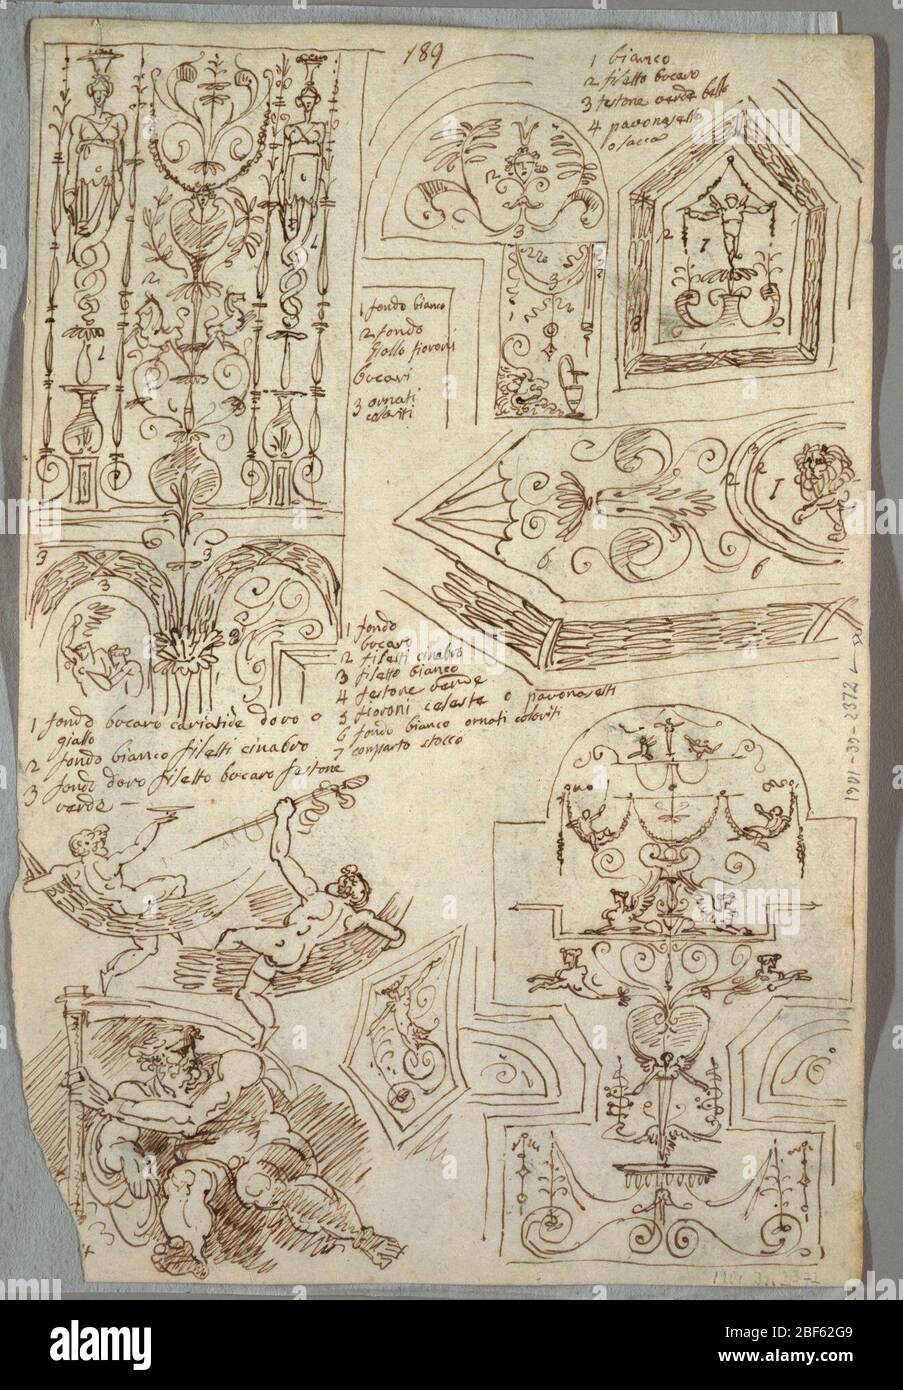 189
1 bianco
2 filetto bocaro
3 festone verde bello
4 pavonasetto
o lacca
1 fondo bianco
2 fondo
giallo fioroni
bocari
3 ornati
coloriti
1 fondo
bocaro
2 filetti cinabro
3 filetto bianco
4 festone verde
5 fioroni celeste o pavonasetti
6 fondo bianco ornati coloriti
7 comparto stocco
1 fondo bocaro cariatide doro o
giallo
2 fondo bianco filetti cinabro
3 fondo doro filetto bocaro festone
verde
1901-39-2372
1901-39-2372
alamy
Image ID: 2BF62G9
www.alamy.com